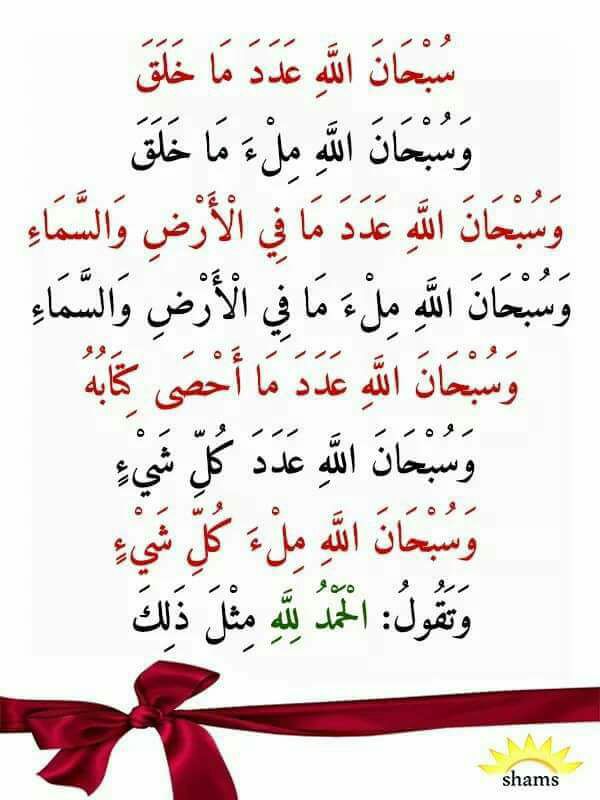 سُبْحَانَ اللَّهِ عَدَدَ مَا خَلَقَ
وَسُبْحَانَ اللَّهِ مِلْءَ مَا خَلَقَ
وَسُبْحَانَ اللَّهِ عَدَدَ مَا فِي الْأَرْضِ وَالسَّمَاءِ
وَسُبْحَانَ اللَّهِ مِلْءَ مَا فِي الْأَرْضِ وَالسَّمَاءِ
وَسُبْحَانَ اللَّهِ عَدَدَ مَا أَحْصَى كِتَابُهُ
وَسُبْحَانَ اللَّهِ عَدَدَ كُلِّ شَيْءٍ
وَسُبْحَانَ اللَّهِ مِلْءَ كُلِّ شَيْءٍ
وَتَقُولُ: الْحَمْدُ لِلَّهِ مِثْلَ ذَلِكَ
shams